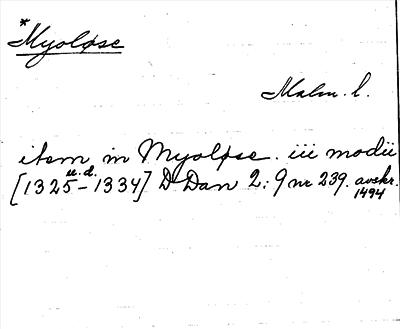 *Myolpse
Malm. l.
item in Myolpse. iii modii
[1325 u.d. - 1334] D Dan 2:9 nr 239. avskr. 1494